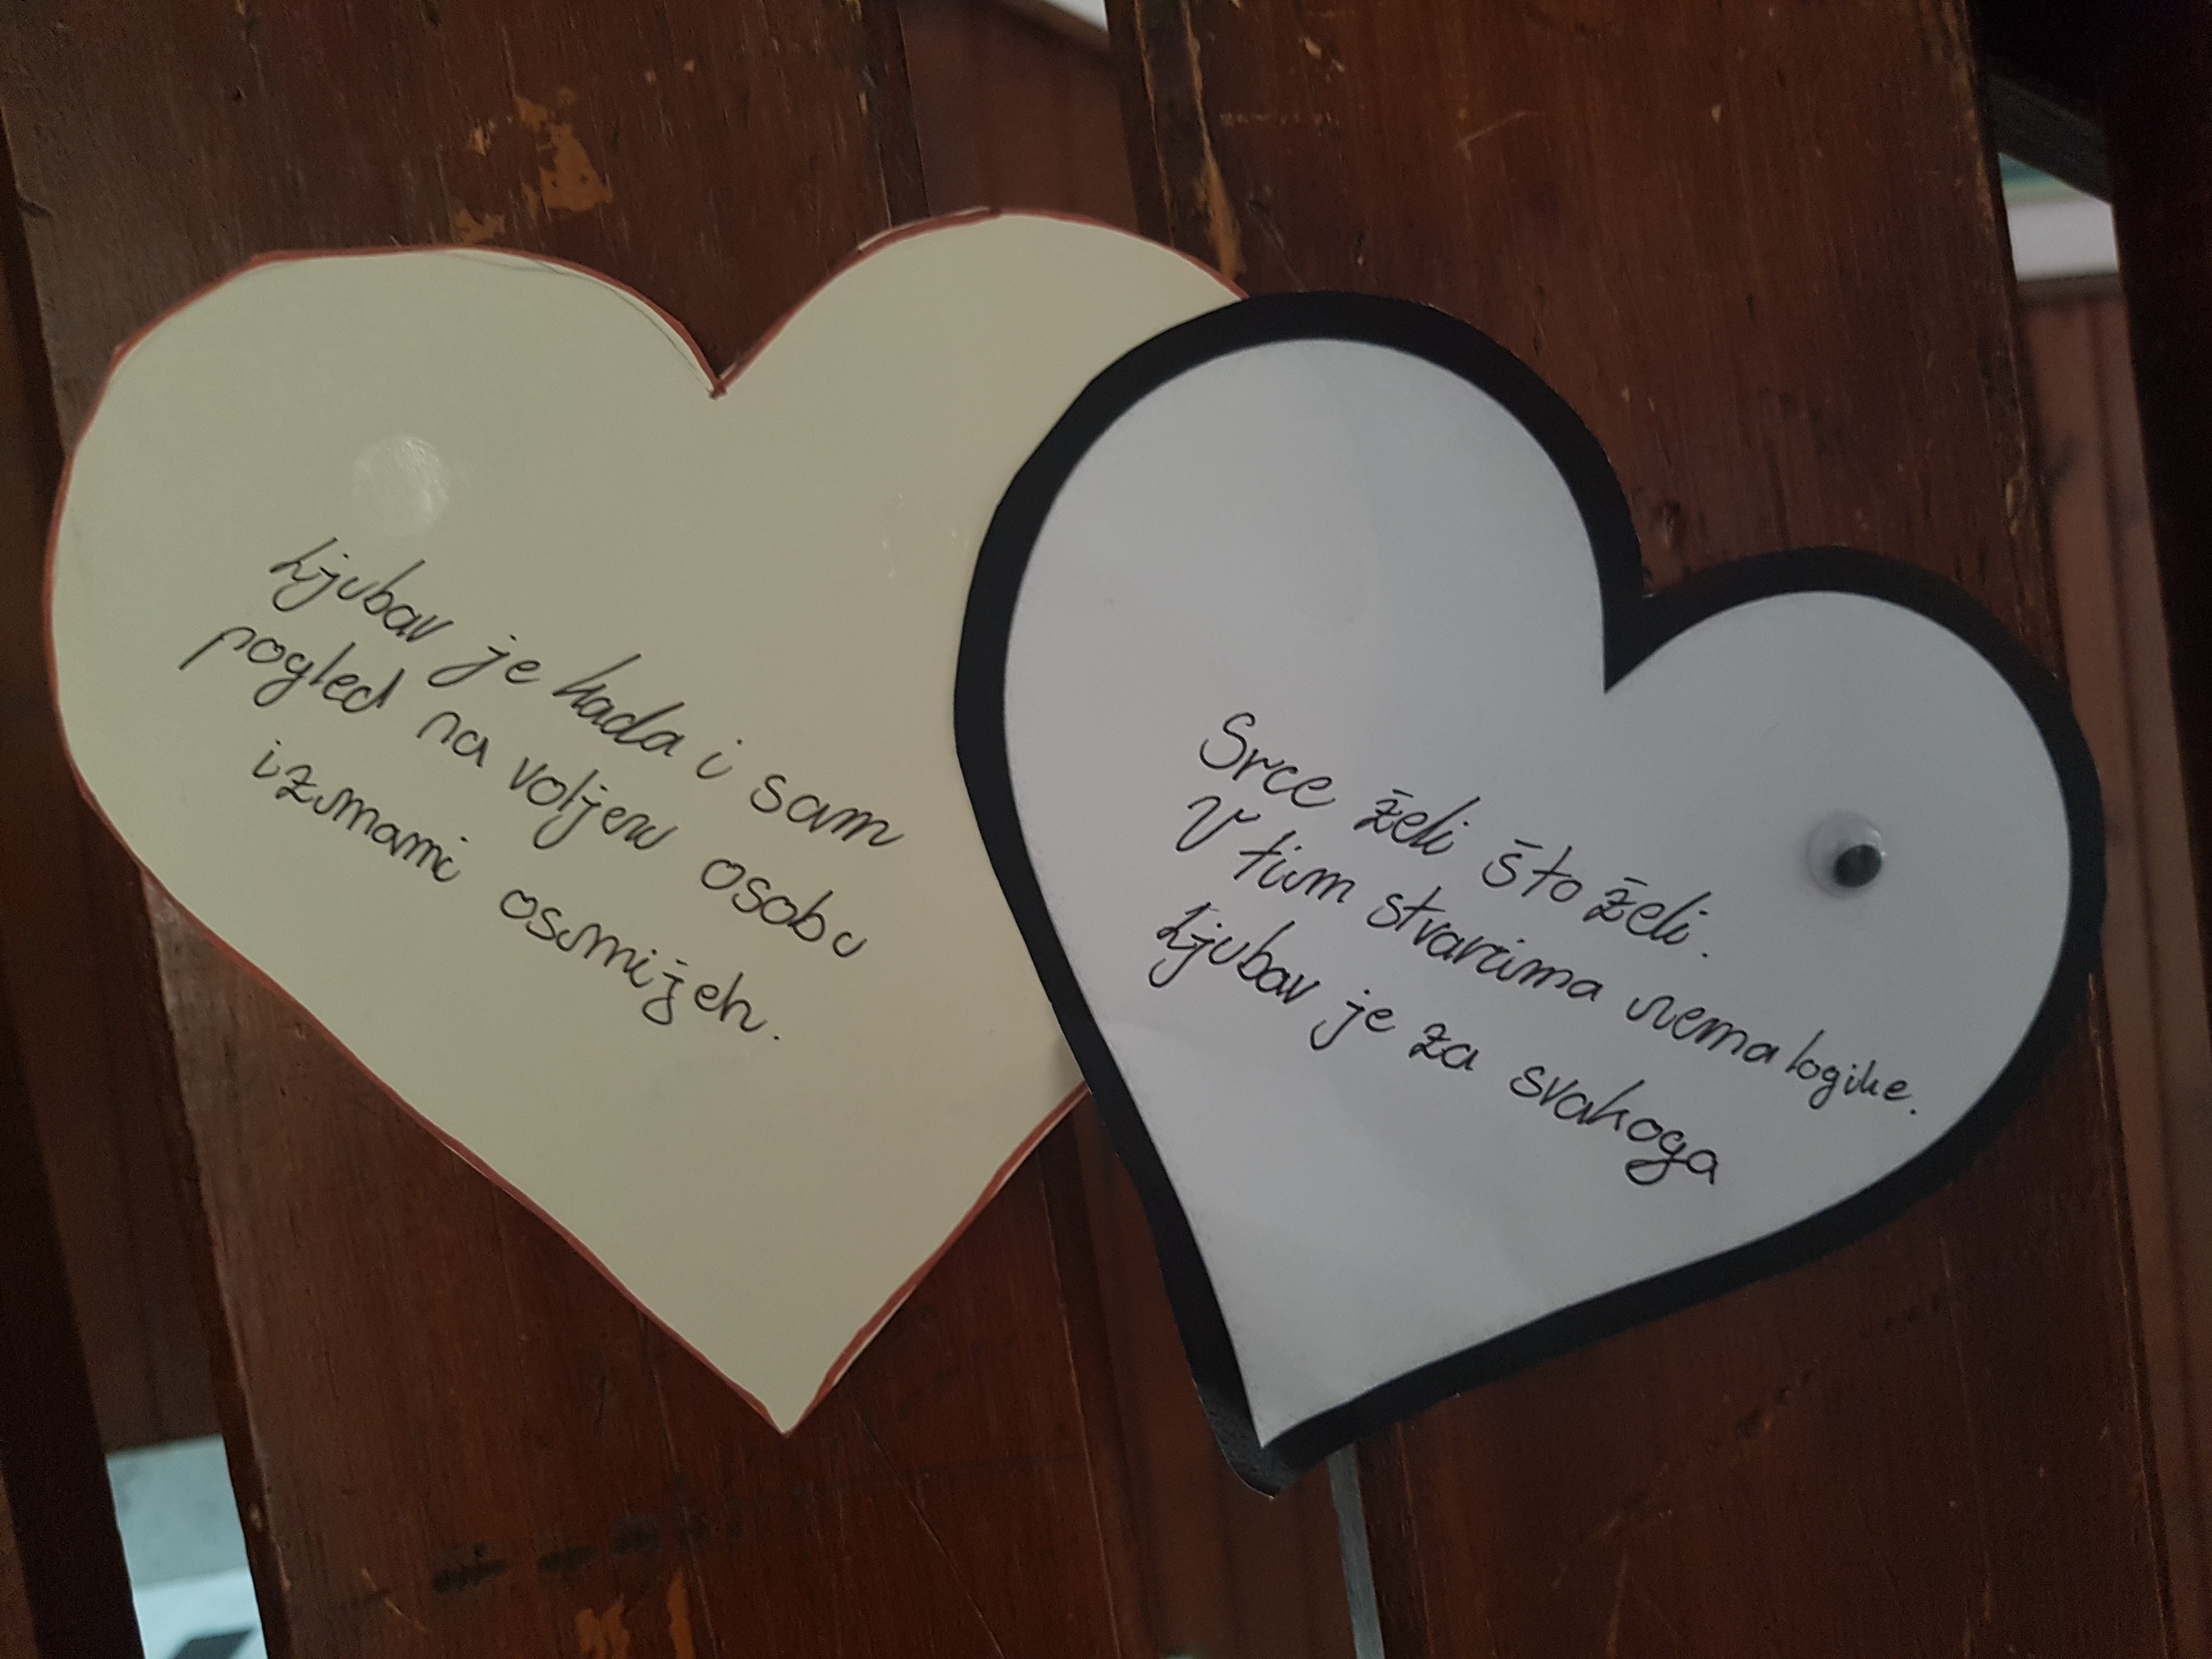 Ljubav je kada i sam
pogled na voljenu osobu
izmami osmijeh.
Srce želi što želi.
U tim stvarima nema logike.
Ljubav je za svakoga